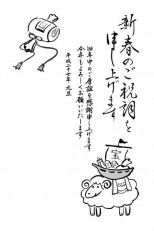 新春のご祝詞を
申し上げます
旧年中のご厚誼を感謝申し上げます
今年もよろしくお願いいたします
平成二十七年 元旦
宝